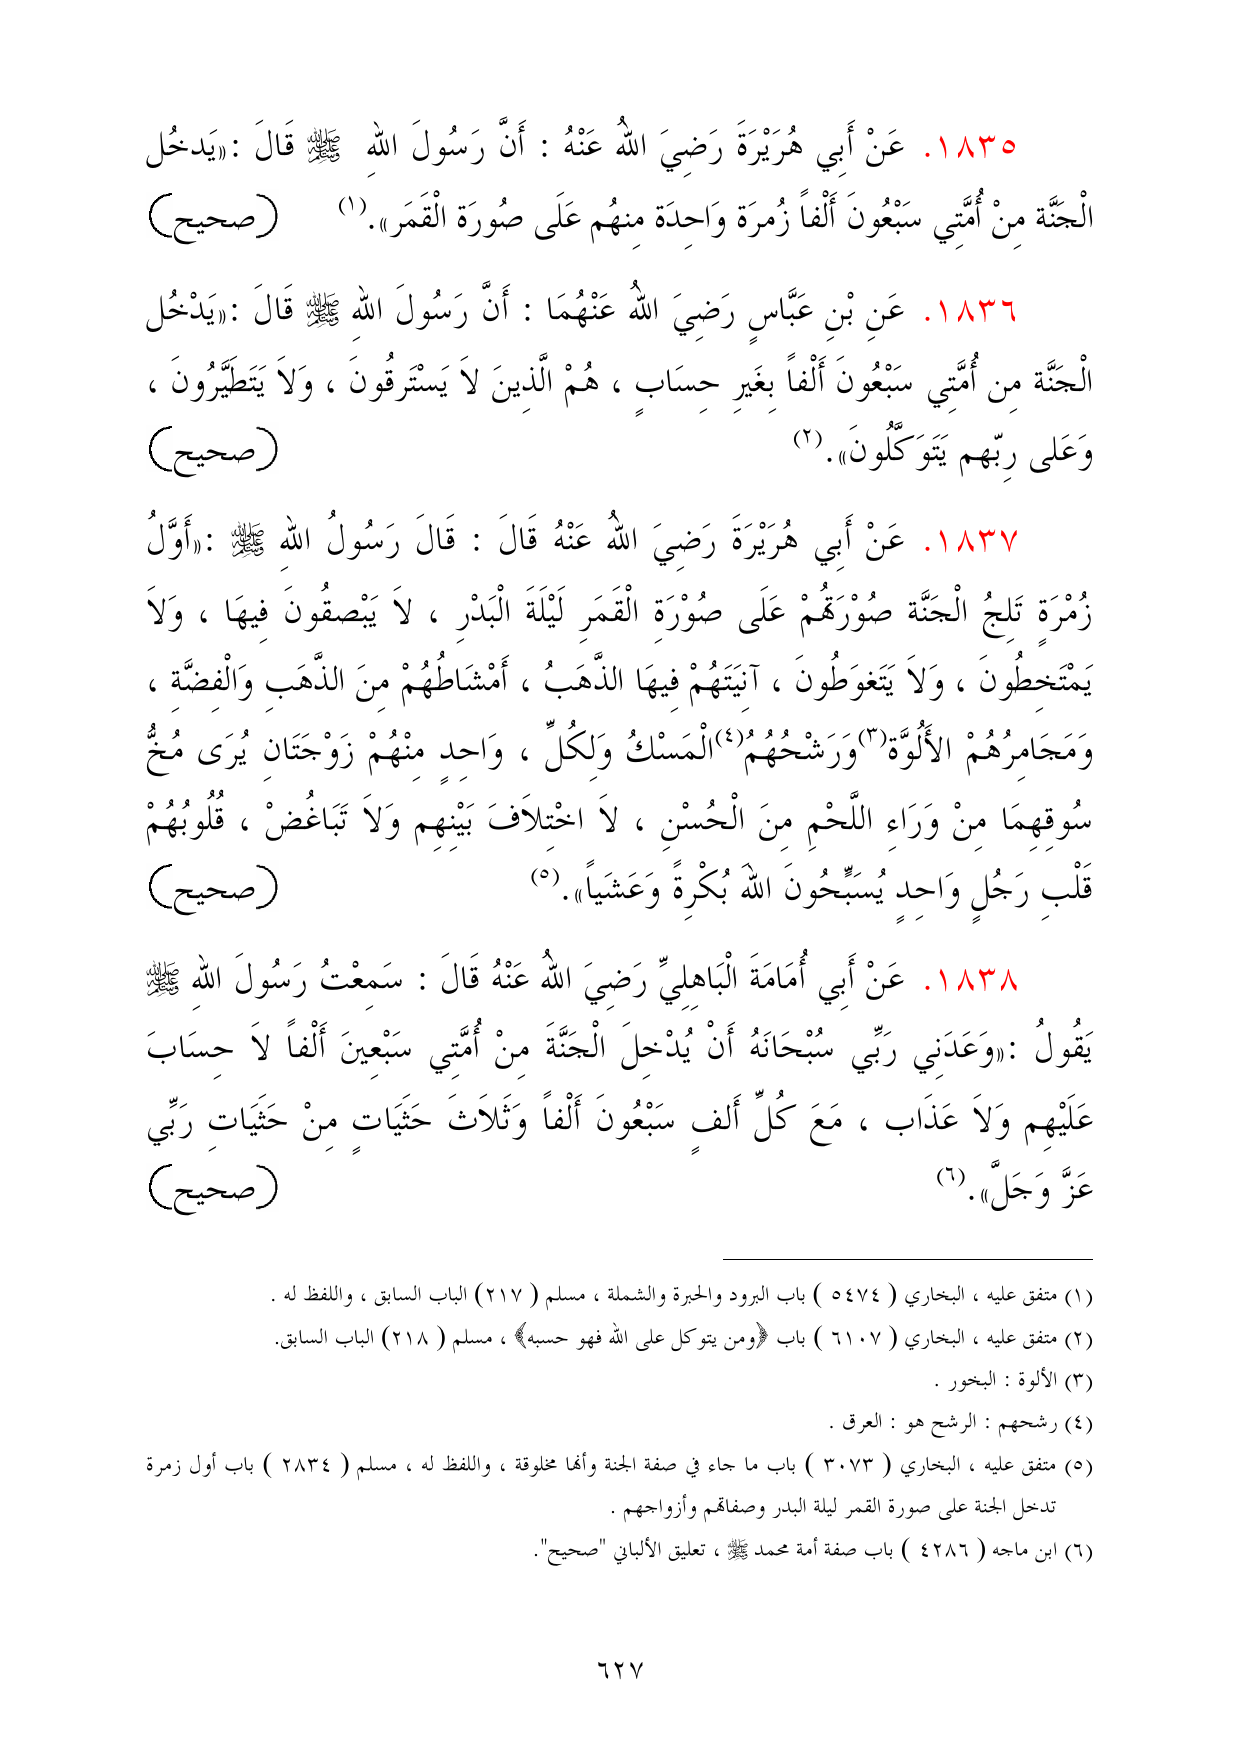 ١٨٣٥. عَنْ أَبِي هُرَيْرَةَ رَضِيَ اللهُ عَنْهُ : أَنَّ رَسُولَ اللهِ ﷺ قَالَ :«يَدخُل
الْجَنَّة مِنْ أُمَّتِي سَبْعُونَ أَلْفاً زُمرَة وَاحِدَة مِنهُم عَلَى صُورَة الْقَمَر».(١) (صحيح)
١٨٣٦. عَنِ بْنِ عَبَّاسٍ رَضِيَ اللهُ عَنْهُمَا : أَنَّ رَسُولَ اللهِ ﷺ قَالَ :«يَدْخُل
الْجَنَّة مِن أُمَّتِي سَبْعُونَ أَلْفاً بِغَيرِ حِسَابٍ ، هُمْ الَّذِينَ لاَ يَسْتَرقُونَ ، وَلاَ يَتَطَيَّرُونَ ،
وَعَلى رِبّهم يَتَوَكَّلُونَ».(٢) (صحيح)
١٨٣٧. عَنْ أَبِي هُرَيْرَةَ رَضِيَ اللهُ عَنْهُ قَالَ : قَالَ رَسُولُ اللهِ ﷺ :«أَوَّلُ
زُمْرَةٍ تَلِجُ الْجَنَّة صُوْرَتهُمْ عَلَى صُوْرَةِ الْقَمَرِ لَيْلَةَ الْبَدْرِ ، لاَ يَبْصقُونَ فِيهَا ، وَلاَ
يَمْتَخِطُونَ ، وَلاَ يَتَغوَطُونَ ، آنِيَتَهُمْ فِيهَا الذَّهَبُ ، أَمْشَاطُهُمْ مِنَ الذَّهَبِ وَالْفِضَّة ،
وَمَجَامِرُهُمْ الأَلُوَّة(٣)وَرَشْحُهُمُ(٤)الْمَسْكُ وَلِكُلِّ ، وَاحِدٍ مِنْهُمْ زَوْجَتَانِ يُرَى مُخُّ
سُوقِهِمَا مِنْ وَرَاءِ اللَّحْمِ مِنَ الْحُسْنِ ، لاَ اخْتِلاَفَ بَيْنِهِم وَلاَ تَبَاغُضْ ، قُلُوبُهُمْ
قَلْبِ رَجُلٍ وَاحِدٍ يُسَبِّحُونَ اللهَ بُكْرِةً وَعَشَياً».(٥) (صحيح)
١٨٣٨. عَنْ أَبِي أُمَامَةَ الْبَاهِلِيِّ رَضِيَ اللهُ عَنْهُ قَالَ : سَمِعْتُ رَسُولَ اللهِ ﷺ
يَقُولُ :«وَعَدَنِي رَبِّي سُبْحَانَهُ أَنْ يُدْخِلَ الْجَنَّةَ مِنْ أُمَّتِي سَبْعِينَ أَلْفاً لاَ حِسَابَ
عَلَيْهِم وَلاَ عَذَاب ، مَعَ كُلِّ أَلفٍ سَبْعُونَ أَلْفاً وَثَلاَثَ حَثَيَاتٍ مِنْ حَثَيَاتِ رَبِّي
عَزَّ وَجَلَّ».(٦) (صحيح)
(١) متفق عليه ، البخاري ( ٥٤٧٤ ) باب البرود والحبرة والشملة ، مسلم ( ٢١٧) الباب السابق ، واللفظ له .
(٢) متفق عليه ، البخاري ( ٦١٠٧ ) باب ﴿ومن يتوكل على الله فهو حسبه﴾ ، مسلم ( ٢١٨) الباب السابق.
(٣) الألوة : البخور .
(٤) رشحهم : الرشح هو : العرق .
(٥) متفق عليه ، البخاري ( ٣٠٧٣ ) باب ما جاء في صفة الجنة وأنها مخلوقة ، واللفظ له ، مسلم ( ٢٨٣٤ ) باب أول زمرة
تدخل الجنة على صورة القمر ليلة البدر وصفاتهم وأزواجهم .
(٦) ابن ماجه ( ٤٢٨٦ ) باب صفة أمة محمد ﷺ ، تعليق الألباني "صحيح".
٦٢٧